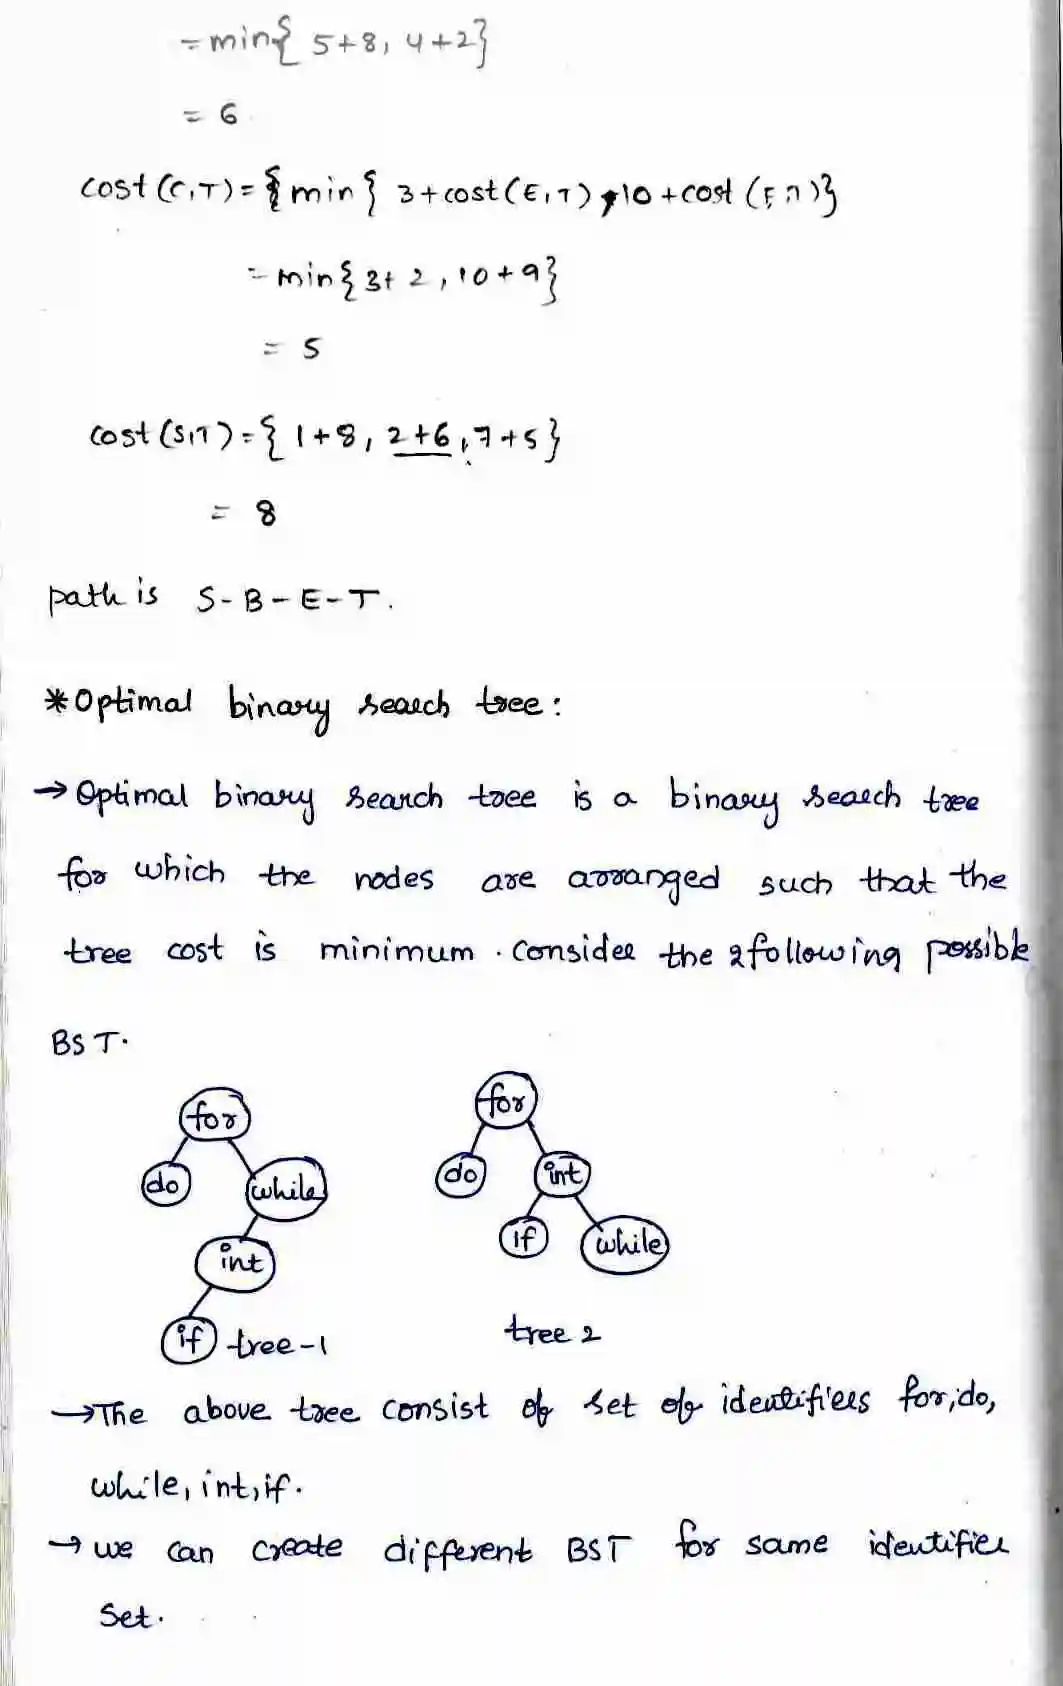 = min{ 5+8, 4+2}
= 6
cost (C,T) = { min { 3+cost(E,T) , 10 +cost (F,T)}
= min{ 3+ 2, 10 + 9}
= 5
cost (S,T) = { 1+8, 2+6, 7+5}
= 8
path is S-B-E-T.
*Optimal binary search tree:
→ Optimal binary search tree is a binary search tree
for which the nodes are arranged such that the
tree cost is minimum. Consider the 2 following possible
BST.
for
for
do
while
do
int
int
if
while
if
tree-1
tree 2
→ The above tree consist of set of identifiers for, do,
while, int, if.
→ we can create different BST for same identifier
Set.